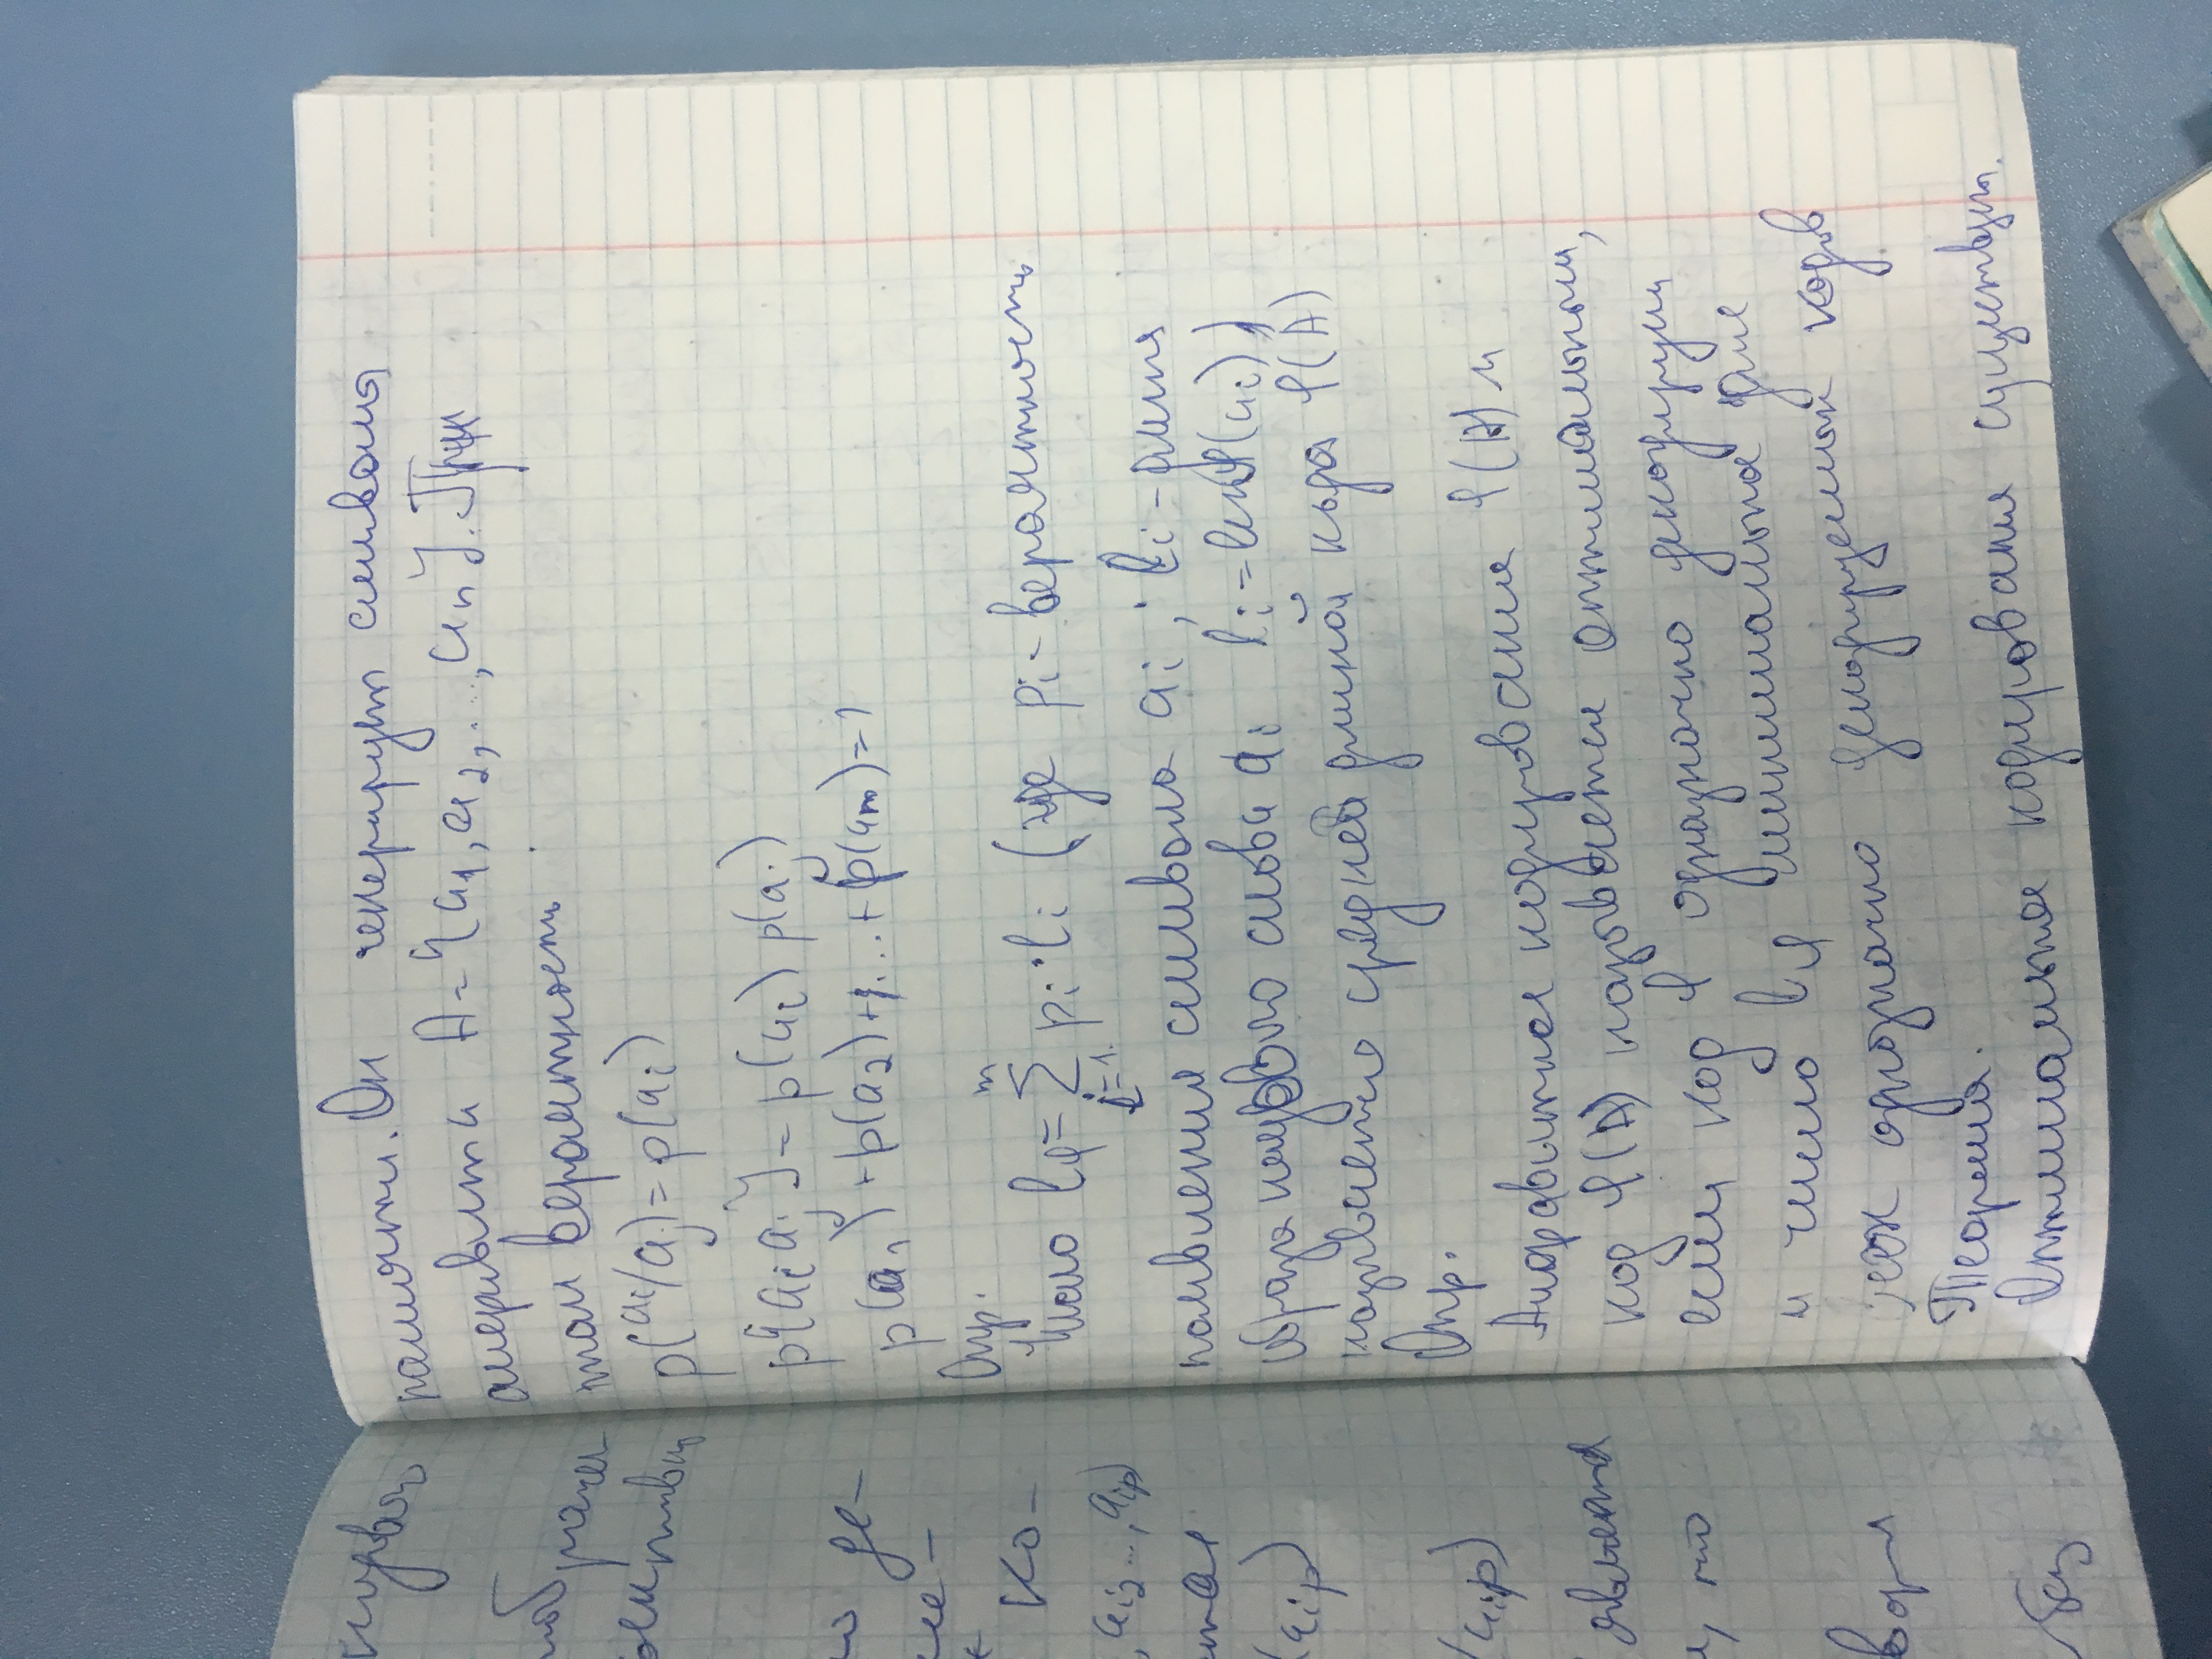 памяти. Он генерирует символы
алфавита A = {a1, a2, ..., an}. При
том вероятность
p(ai/aj) = p(ai)
p{ai aj} = p(ai) p(aj)
p(a1) + p(a2) + ... + p(am) = 1
Опр.
Число lφ = m Σ i=1 pi · li (где pi - вероятность
появления символа ai, li - длина
образа кодового слова ai li = len φ(ai))
называется средней длиной кода φ(A)
Опр.
Алфавитное кодирование φ(A) и
код φ(A) называется оптимальным,
если код φ однозначно декодируем
и число lφ минимальное для
всех однозначно декодируемых кодов
Теорема.
Оптимальное кодирование существует.
де-
ко-
, ai2 ..., aip)
(aip)
(aip)
является
, что
без